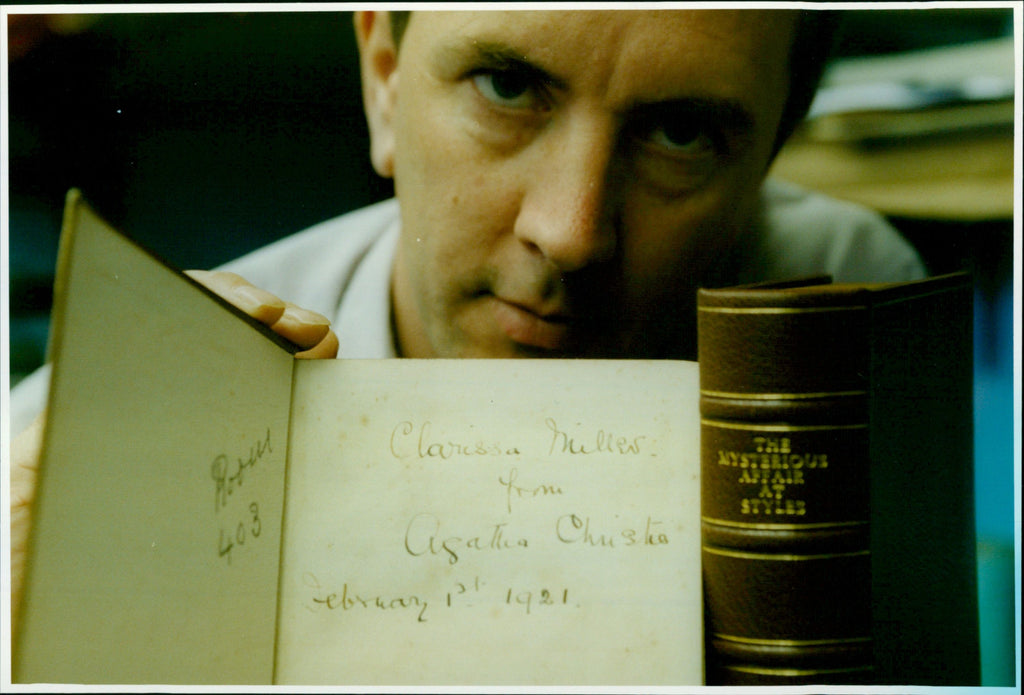 Room
403
Clarissa Miller.
from
Agatha Christie
February 1st 1921.
THE
MYSTERIOUS
AFFAIR
AT
STYLES